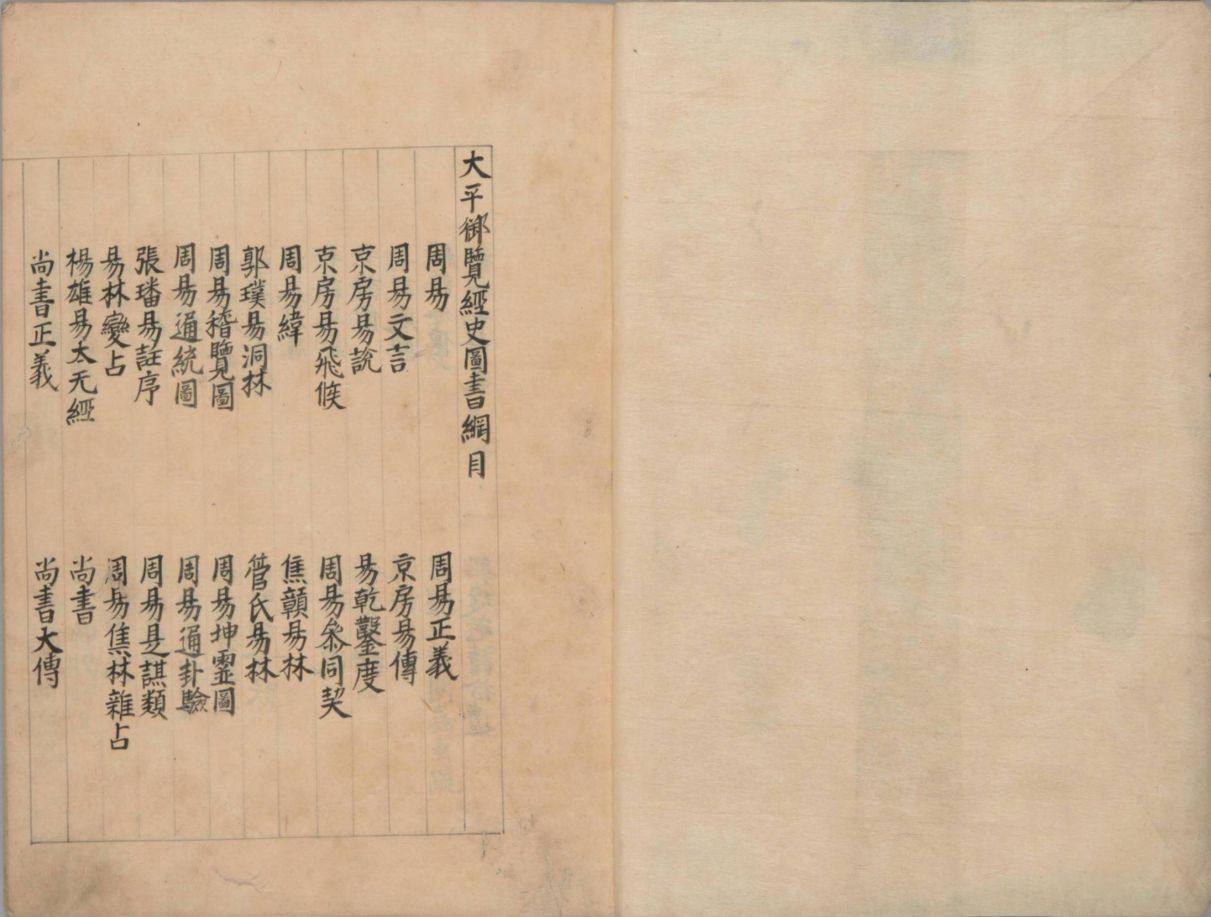 大平御覽經史圖書綱目
周易　周易正義
周易文言　京房易傳
京房易說　易乾鑿度
京房易飛候　周易叅同契
周易緯　焦贛易林
郭璞易洞林　管氏易林
周易稽覽圖　周易坤靈圖
周易通統圖　周易通卦驗
張璠易註序　周易是謀類
易林變占　周易焦林雜占
楊雄易太玄經　尚書
尚書正義　尚書大傳